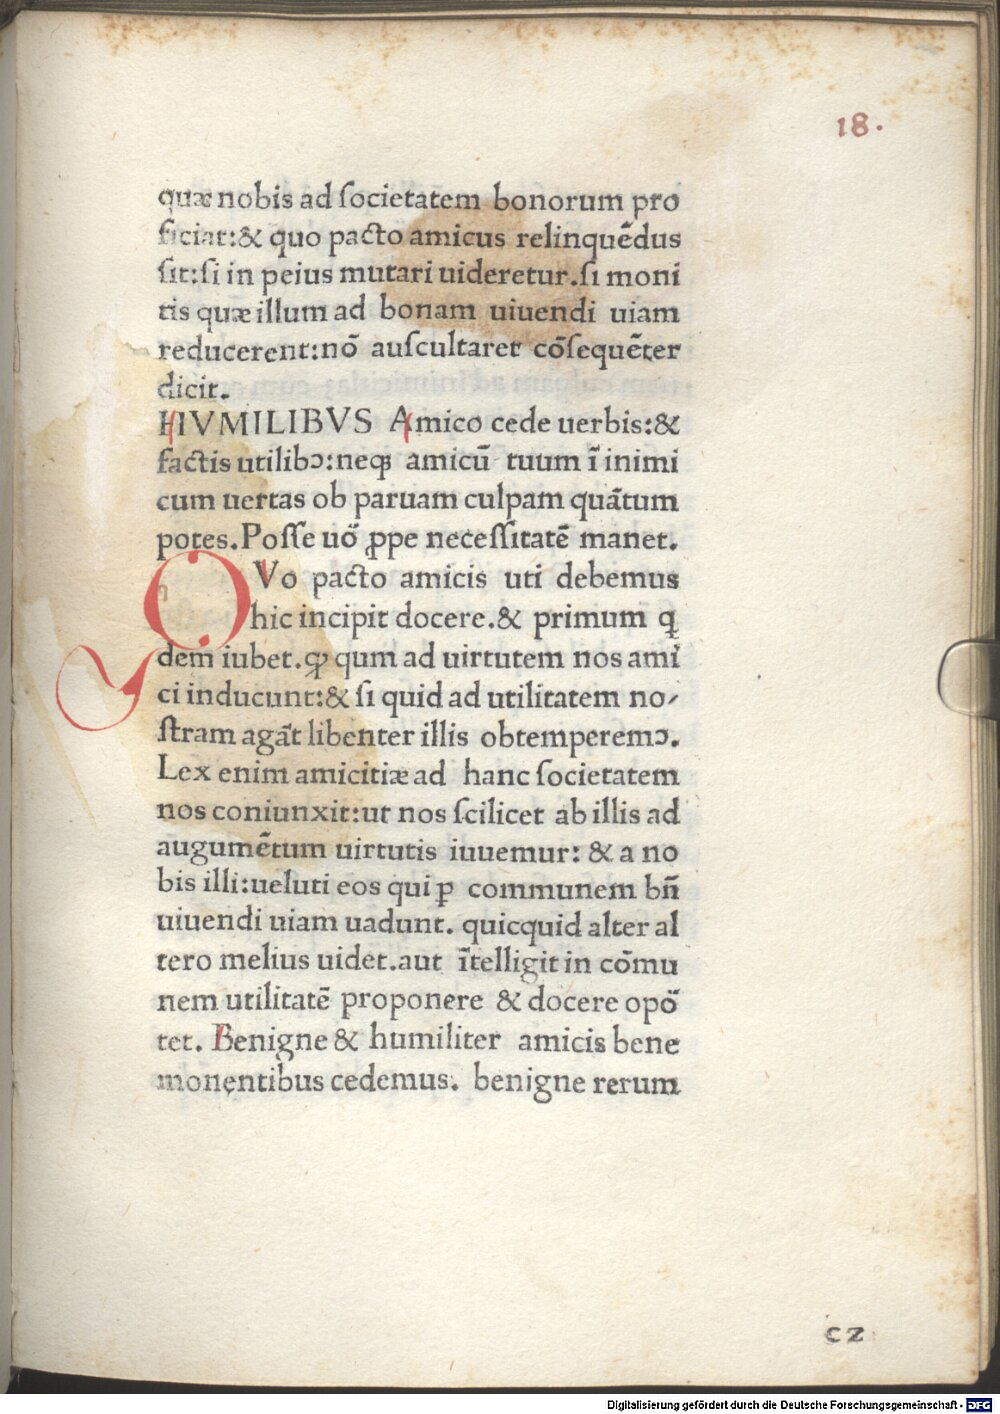 18.
quæ nobis ad ſocietatem bonorum pro
ficiat:& quo pacto amicus relinquēdus
ſit:ſi in peius mutari uideretur.ſi moni
tis quæ illum ad bonam uiuendi uiam
reducerent:nō auſcultaret cōſequēter
dicit.
HVMILIBVS Amico cede uerbis:&
factis utilibꝰ:neqꝫ amicū tuum ī inimi
cum uertas ob paruam culpam quātum
potes.Poſſe uō ꝓpe neceſſitatē manet.
QVo pacto amicis uti debemus
hic incipit docere.& primum q
dem iubet.ꝙ qum ad uirtutem nos ami
ci inducunt:& ſi quid ad utilitatem no-
ſtram agāt libenter illis obtemperemꝰ.
Lex enim amicitiæ ad hanc ſocietatem
nos coniunxit:ut nos ſcilicet ab illis ad
augumētum uirtutis iuuemur: & a no
bis illi:ueluti eos qui ꝑ communem bn̄
uiuendi uiam uadunt. quicquid alter al
tero melius uidet.aut ītelligit in cōmu
nem utilitatē proponere & docere opō
tet. Benigne & humiliter amicis bene
monentibus cedemus. benigne rerum
c2
Digitalisierung gefördert durch die Deutsche Forschungsgemeinschaft - DFG